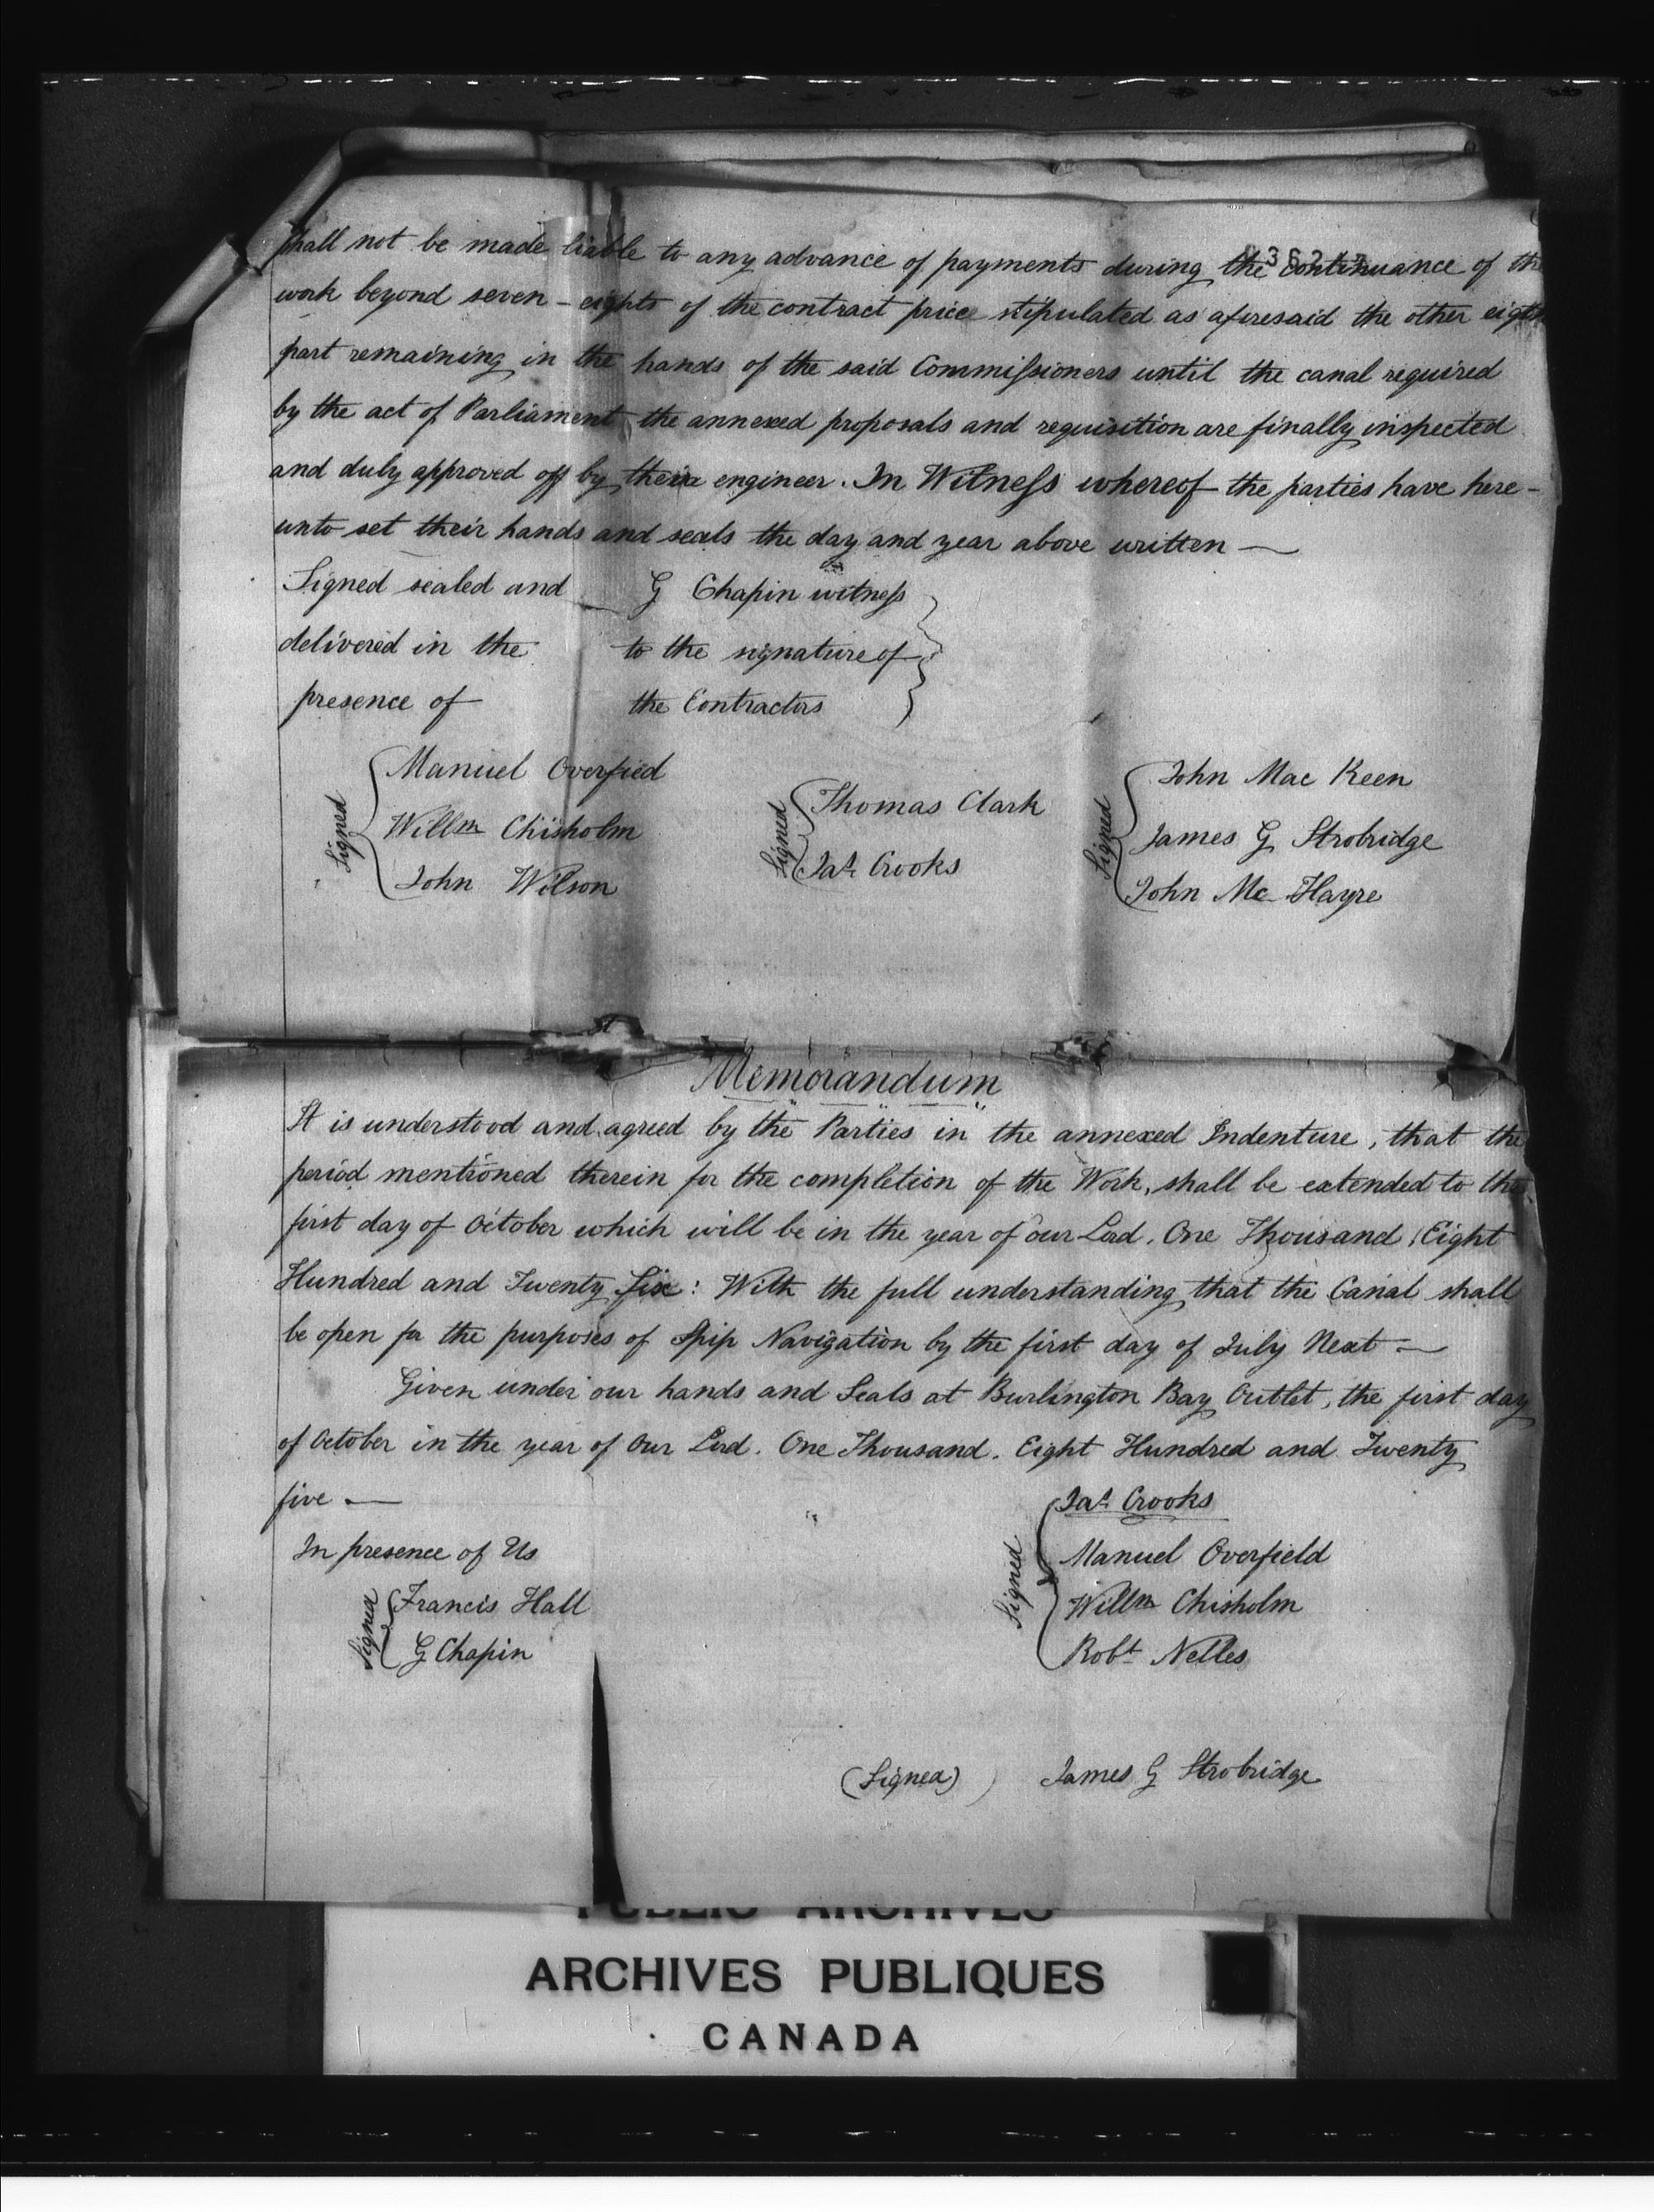 shall not be made liable to any advance of payments during the continuance of the
work beyond seven-eights of the contract price stipulated as aforesaid the other eigth
part remaining in the hands of the said Commissioners until the canal required
by the act of Parliament the annexed proposals and requisition are finally inspected
and duly approved off by their engineer. In Witness whereof the parties have here-
unto set their hands and seals the day and year above written —
Signed sealed and G Chapin witness
delivered in the to the signature of
presence of the Contractors
Signed Manuel Overfied
Willm Chisholm
John Wilson
Signed Thomas Clark
Jas Crooks
Signed John Mac Keen
James G Strobridge
John Mc Hayre
Memorandum
It is understood and agreed by the Parties in the annexed Indenture, that the
period mentioned therein for the completion of the Work, shall be extended to the
first day of October which will be in the year of our Lord. One Thousand Eight
Hundred and Twenty Six: With the full understanding that the Canal shall
be open for the purposes of Ship Navigation by the first day of July Next —
Given under our hands and Seals at Burlington Bay Outlet, the first day
of October in the year of Our Lord. One Thousand. Eight Hundred and Twenty
five —
In presence of Us
Signed Francis Hall
G Chapin
Signed Jas Crooks
Manuel Overfield
Willm Chisholm
Robt Nelles
(Signed) James G Strobridge
PUBLIC ARCHIVES
ARCHIVES PUBLIQUES
CANADA